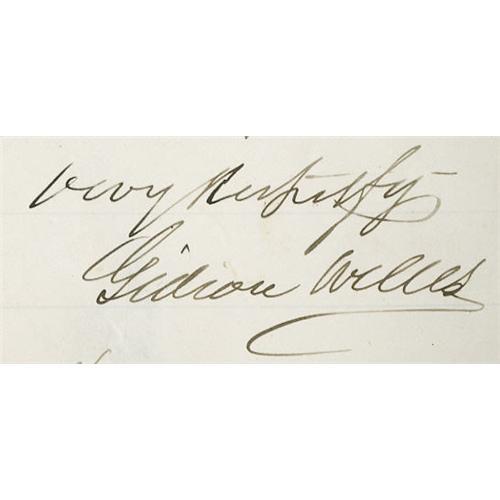 Very Respctfy
Gideon Welles